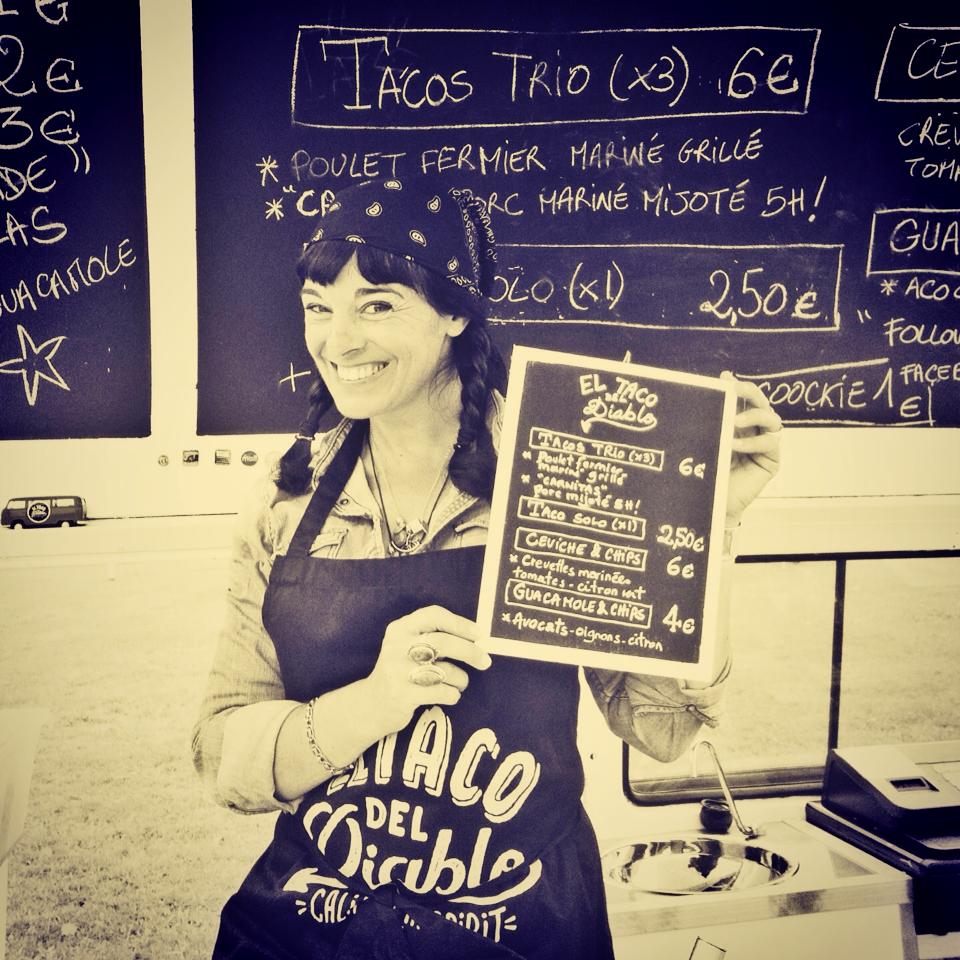 2€
3€
GUACAMOLE
TACOS TRIO (x3) 6€
* POULET FERMIER MARINÉ GRILLÉ
* MARINÉ MIJOTÉ 5H!
(x1) 2,50€
+
COOCKIE 1€
EL TACO
DEL
Diablo
TACOS TRIO (x3) 6€
* Poulet fermier
mariné grillé
* "CARNITAS"
porc mijoté 5H!
TACO SOLO (x1) 2,50€
CEVICHE & CHIPS 6€
* Crevettes marinées
tomates - citron vert
GUACAMOLE & CHIPS 4€
* Avocats - oignons - citron
EL TACO
DEL
Diablo